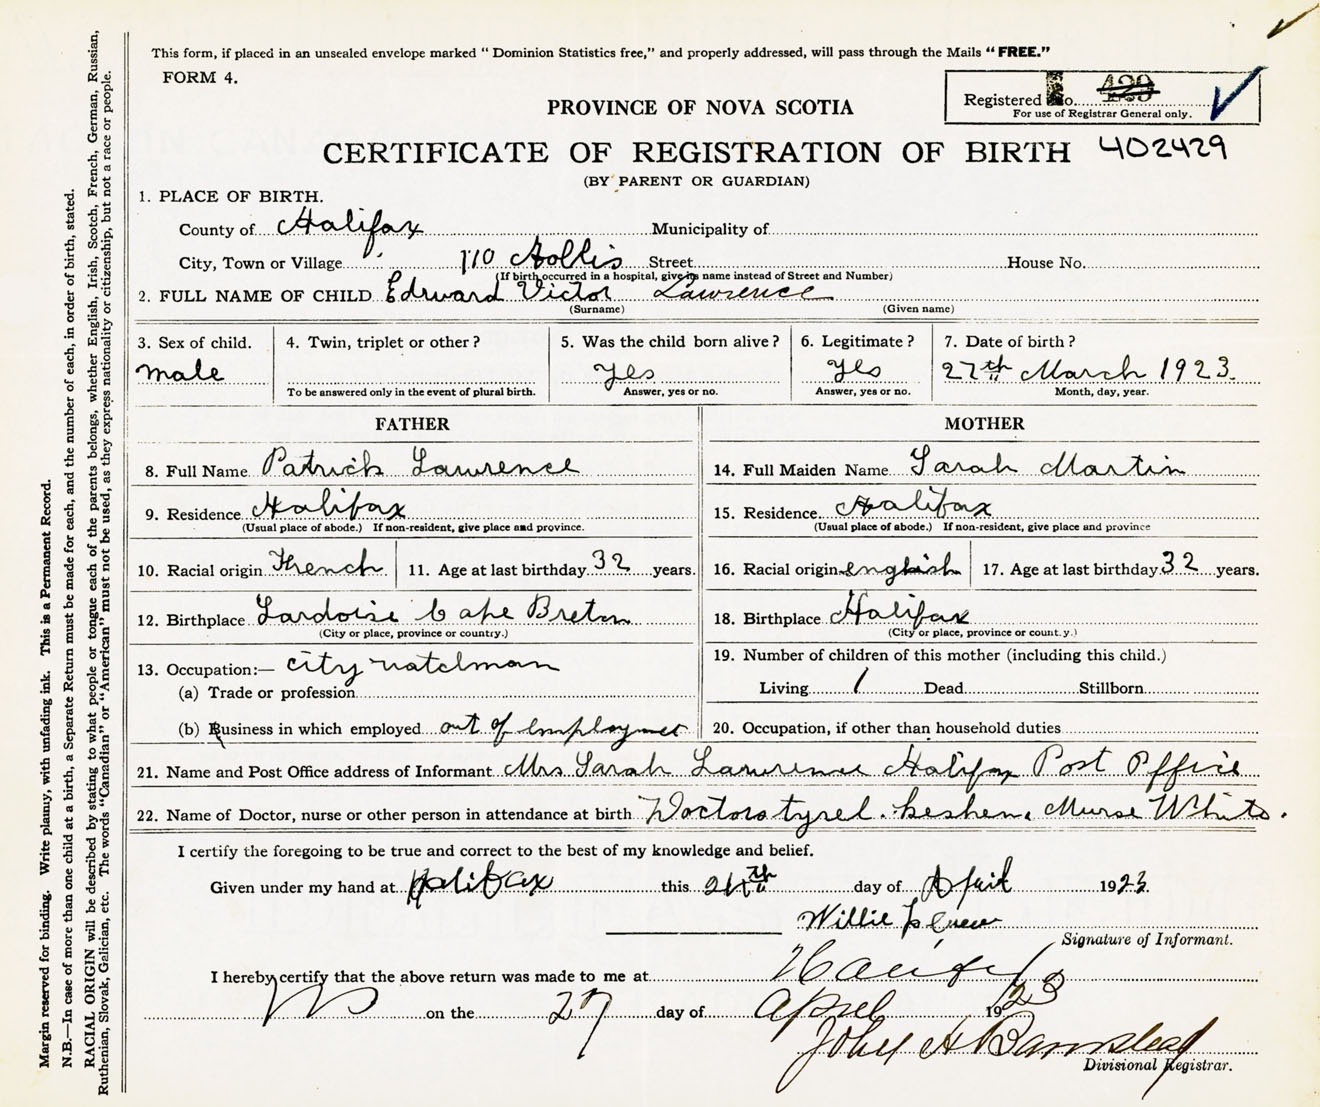 This form, if placed in an unsealed envelope marked "Dominion Statistics free," and properly addressed, will pass through the Mails "FREE."
FORM 4.
Registered No. 429
For use of Registrar General only.
PROVINCE OF NOVA SCOTIA
CERTIFICATE OF REGISTRATION OF BIRTH 402429
(BY PARENT OR GUARDIAN)
1. PLACE OF BIRTH.
County of Halifax Municipality of
City, Town or Village 110 Hollis Street House No.
(If birth occurred in a hospital, give its name instead of Street and Number)
2. FULL NAME OF CHILD Edward Victor Lawrence
(Surname) (Given name)
3. Sex of child. 4. Twin, triplet or other? 5. Was the child born alive? 6. Legitimate? 7. Date of birth?
male Yes Yes 27th March 1923.
To be answered only in the event of plural birth. Answer, yes or no. Answer, yes or no. Month, day, year.
FATHER MOTHER
8. Full Name Patrick Lawrence 14. Full Maiden Name Sarah Martin
9. Residence Halifax 15. Residence Halifax
(Usual place of abode.) If non-resident, give place and province. (Usual place of abode.) If non-resident, give place and province
10. Racial origin French 11. Age at last birthday 32 years. 16. Racial origin english 17. Age at last birthday 32 years.
12. Birthplace Lardoise Cape Breton 18. Birthplace Halifax
(City or place, province or country.) (City or place, province or count.y.)
13. Occupation:— city watchman 19. Number of children of this mother (including this child.)
(a) Trade or profession Living 1 Dead Stillborn
(b) Business in which employed out of employmet 20. Occupation, if other than household duties
21. Name and Post Office address of Informant Mrs Sarah Lawrence Halifax Post Office
22. Name of Doctor, nurse or other person in attendance at birth Doctors Nurse White.
I certify the foregoing to be true and correct to the best of my knowledge and belief.
Given under my hand at Halifax this day of April 1923.
Willie
Signature of Informant.
I hereby certify that the above return was made to me at Halifax
NS on the 27 day of April 1923
John H Barnstead
Divisional Registrar.
Margin reserved for binding. Write plainly, with unfading ink. This is a Permanent Record.
N.B.—In case of more than one child at a birth, a Separate Return must be made for each, and the number of each, in order of birth, stated.
RACIAL ORIGIN will be described by stating to what people or tongue each of the parents belongs, whether English, Irish, Scotch, French, German, Russian,
Ruthenian, Slovak, Galician, etc. The words "Canadian" or "American" must not be used, as they express nationality or citizenship, but not a race or people.